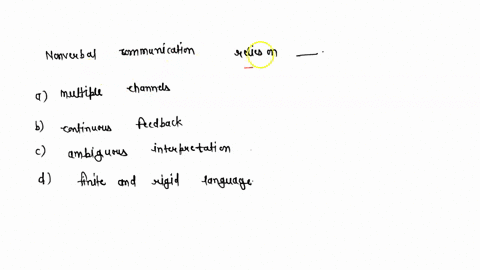 Nonverbal communication relies on ___.
a) multiple channels
b) continuous feedback
c) ambiguous interpretation
d) finite and rigid language